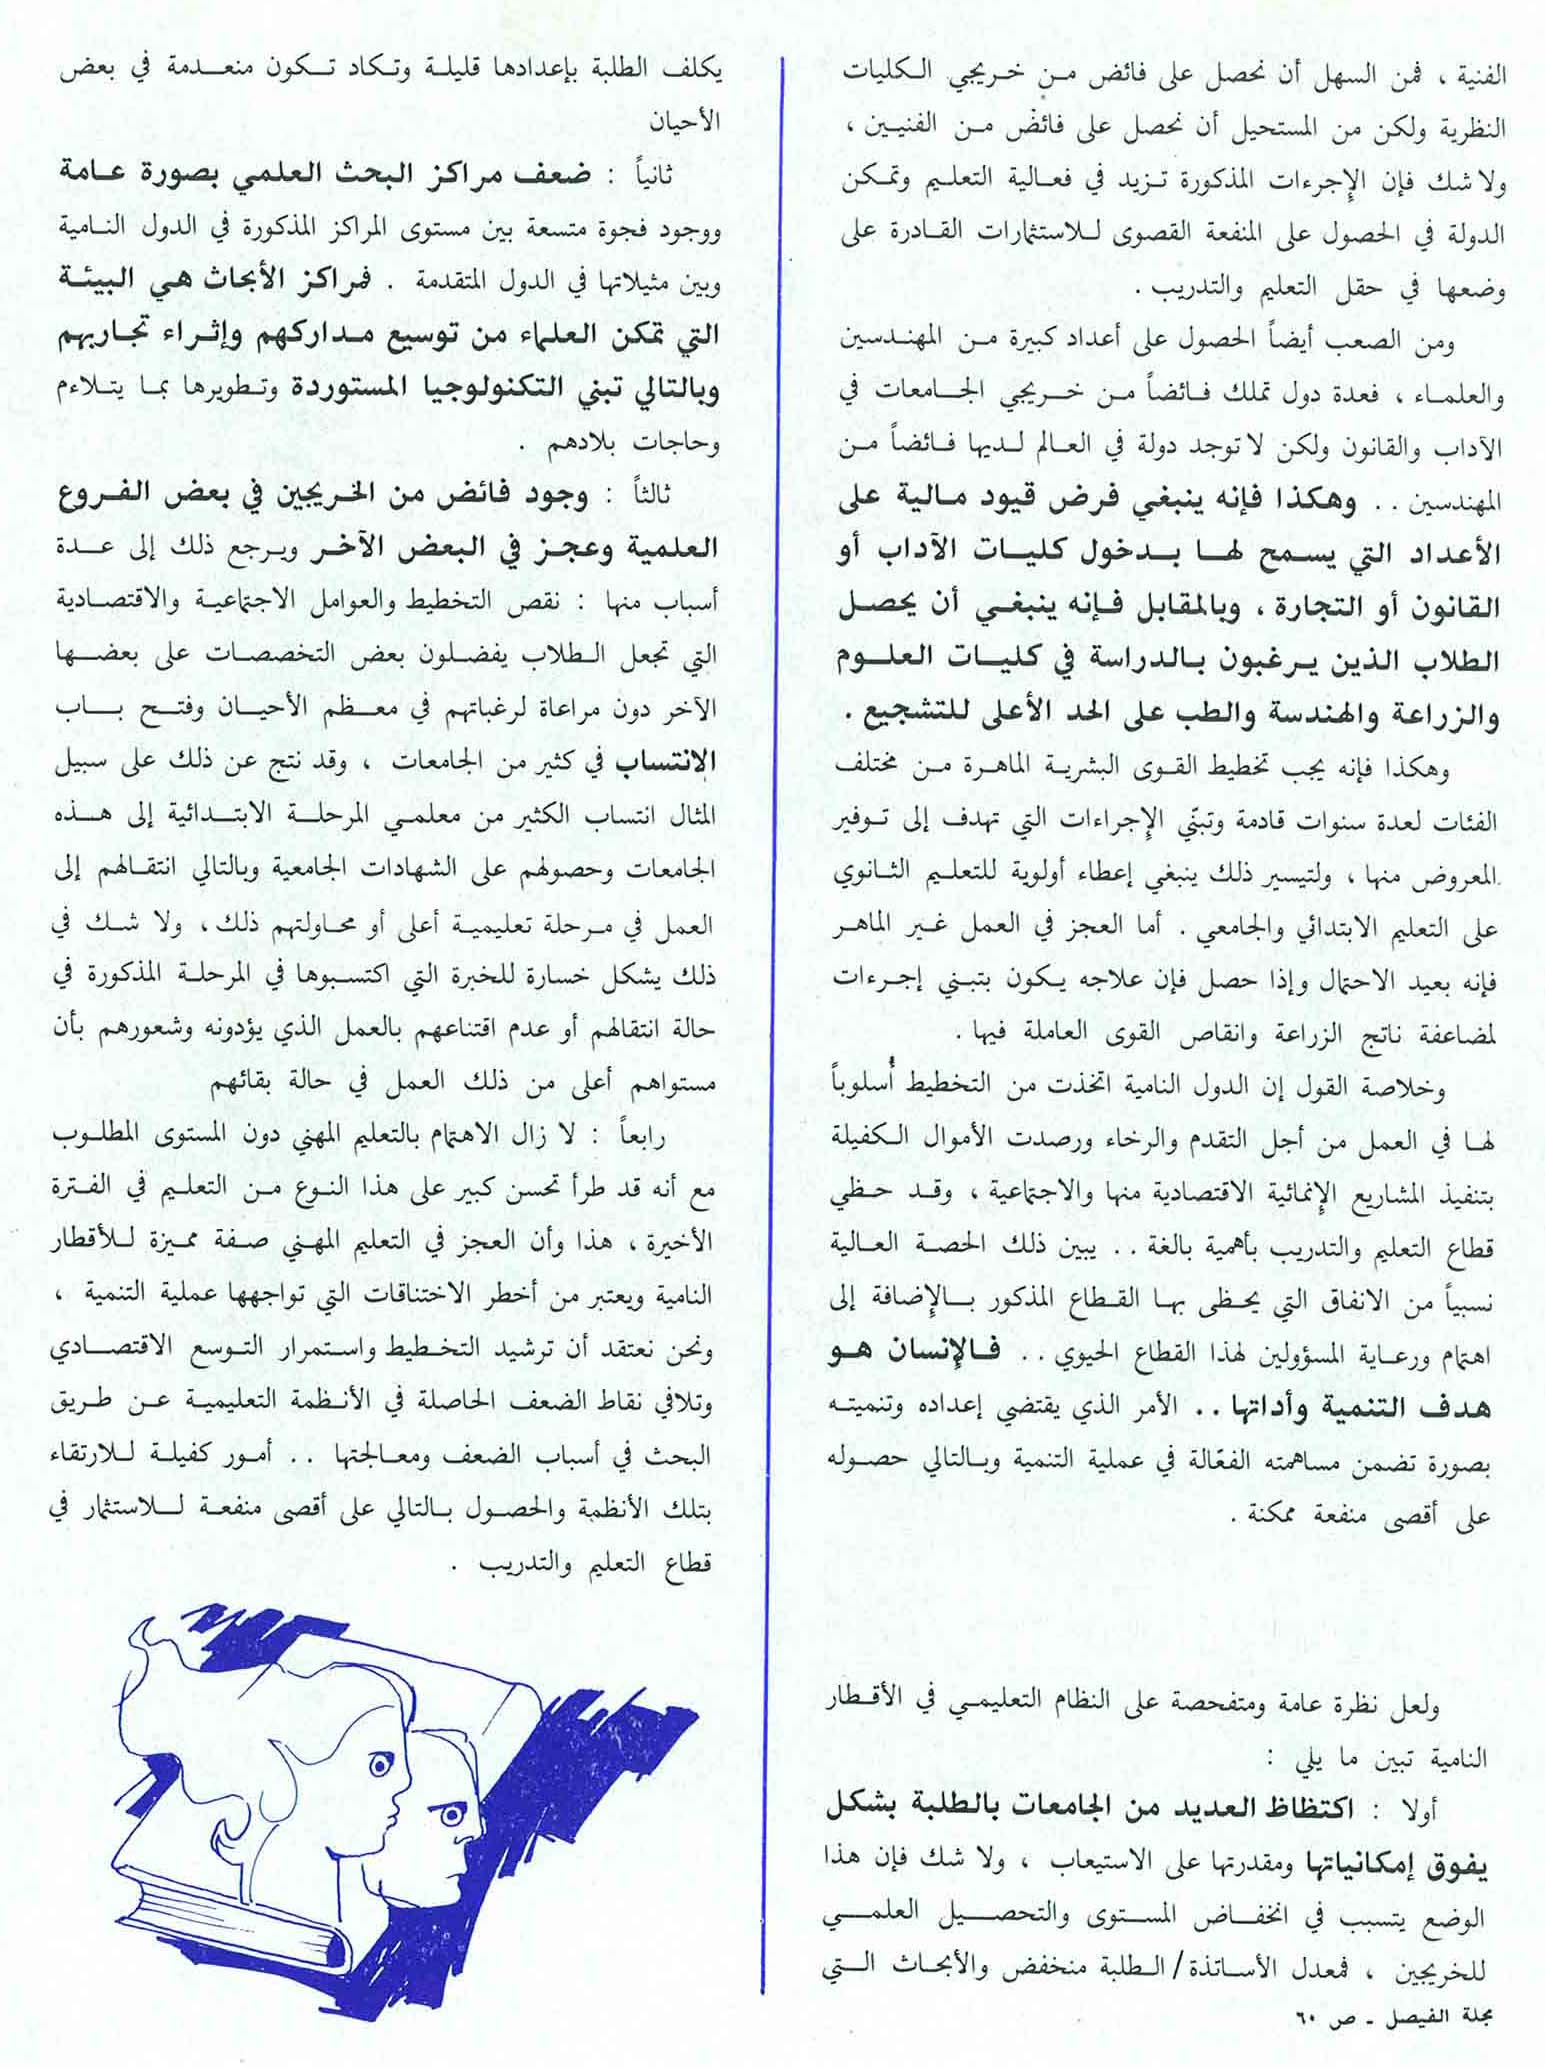 الفنية ، فمن السهل أن نحصل على فائض من خريجي الكليات
النظرية ولكن من المستحيل أن نحصل على فائض من الفنيين ،
ولا شك فإن الإجرءات المذكورة تزيد في فعالية التعليم وتمكن
الدولة في الحصول على المنفعة القصوى للاستثمارات القادرة على
وضعها في حقل التعليم والتدريب .
ومن الصعب أيضاً الحصول على أعداد كبيرة من المهندسين
والعلماء ، فعدة دول تملك فائضاً من خريجي الجامعات في
الآداب والقانون ولكن لا توجد دولة في العالم لديها فائضاً من
المهندسين . . وهكذا فإنه ينبغي فرض قيود مالية على
الأعداد التي يسمح لها بدخول كليات الآداب أو
القانون أو التجارة ، وبالمقابل فإنه ينبغي أن يحصل
الطلاب الذين يرغبون بالدراسة في كليات العلوم
والزراعة والهندسة والطب على الحد الأعلى للتشجيع .
وهكذا فإنه يجب تخطيط القوى البشرية الماهرة من مختلف
الفئات لعدة سنوات قادمة وتبنّي الإجراءات التي تهدف إلى توفير
المعروض منها ، ولتيسير ذلك ينبغي إعطاء أولوية للتعليم الثانوي
على التعليم الابتدائي والجامعي . أما العجز في العمل غير الماهر
فإنه بعيد الاحتمال وإذا حصل فإن علاجه يكون بتبني إجرءات
لمضاعفة ناتج الزراعة وانقاص القوى العاملة فيها .
وخلاصة القول إن الدول النامية اتخذت من التخطيط أُسلوباً
لها في العمل من أجل التقدم والرخاء ورصدت الأموال الكفيلة
بتنفيذ المشاريع الإنمائية الاقتصادية منها والاجتماعية ، وقد حظي
قطاع التعليم والتدريب بأهمية بالغة . . يبين ذلك الحصة العالية
نسبياً من الانفاق التي يحظى بها القطاع المذكور بالإضافة إلى
اهتمام ورعاية المسؤولين لهذا القطاع الحيوي . . فالإنسان هو
هدف التنمية وأداتها . . الأمر الذي يقتضي إعداده وتنميته
بصورة تضمن مساهمته الفعّالة في عملية التنمية وبالتالي حصوله
على أقصى منفعة ممكنة .
ولعل نظرة عامة ومتفحصة على النظام التعليمي في الأقطار
النامية تبين ما يلي :
أولا : اكتظاظ العديد من الجامعات بالطلبة بشكل
يفوق إمكانياتها ومقدرتها على الاستيعاب ، ولا شك فإن هذا
الوضع يتسبب في انخفاض المستوى والتحصيل العلمي
للخريجين ، فمعدل الأساتذة/الطلبة منخفض والأبحاث التي
مجلة الفيصل - ص ٦٠
يكلف الطلبة بإعدادها قليلة وتكاد تكون منعدمة في بعض
الأحيان
ثانياً : ضعف مراكز البحث العلمي بصورة عامة
ووجود فجوة متسعة بين مستوى المراكز المذكورة في الدول النامية
وبين مثيلاتها في الدول المتقدمة . فمراكز الأبحاث هي البيئة
التي تمكن العلماء من توسيع مداركهم وإثراء تجاربهم
وبالتالي تبني التكنولوجيا المستوردة وتطويرها بما يتلاءم
وحاجات بلادهم .
ثالثاً : وجود فائض من الخريجين في بعض الفروع
العلمية وعجز في البعض الآخر ويرجع ذلك إلى عدة
أسباب منها : نقص التخطيط والعوامل الاجتماعية والاقتصادية
التي تجعل الطلاب يفضلون بعض التخصصات على بعضها
الآخر دون مراعاة لرغباتهم في معظم الأحيان وفتح باب
الانتساب في كثير من الجامعات ، وقد نتج عن ذلك على سبيل
المثال انتساب الكثير من معلمي المرحلة الابتدائية إلى هذه
الجامعات وحصولهم على الشهادات الجامعية وبالتالي انتقالهم إلى
العمل في مرحلة تعليمية أعلى أو محاولتهم ذلك ، ولا شك في
ذلك يشكل خسارة للخبرة التي اكتسبوها في المرحلة المذكورة في
حالة انتقالهم أو عدم اقتناعهم بالعمل الذي يؤدونه وشعورهم بأن
مستواهم أعلى من ذلك العمل في حالة بقائهم
رابعاً : لا زال الاهتمام بالتعليم المهني دون المستوى المطلوب
مع أنه قد طرأ تحسن كبير على هذا النوع من التعليم في الفترة
الأخيرة ، هذا وأن العجز في التعليم المهني صفة مميزة للأقطار
النامية ويعتبر من أخطر الاختناقات التي تواجهها عملية التنمية ،
ونحن نعتقد أن ترشيد التخطيط واستمرار التوسع الاقتصادي
وتلافي نقاط الضعف الحاصلة في الأنظمة التعليمية عن طريق
البحث في أسباب الضعف ومعالجتها . . أمور كفيلة للارتقاء
بتلك الأنظمة والحصول بالتالي على أقصى منفعة للاستثمار في
قطاع التعليم والتدريب .